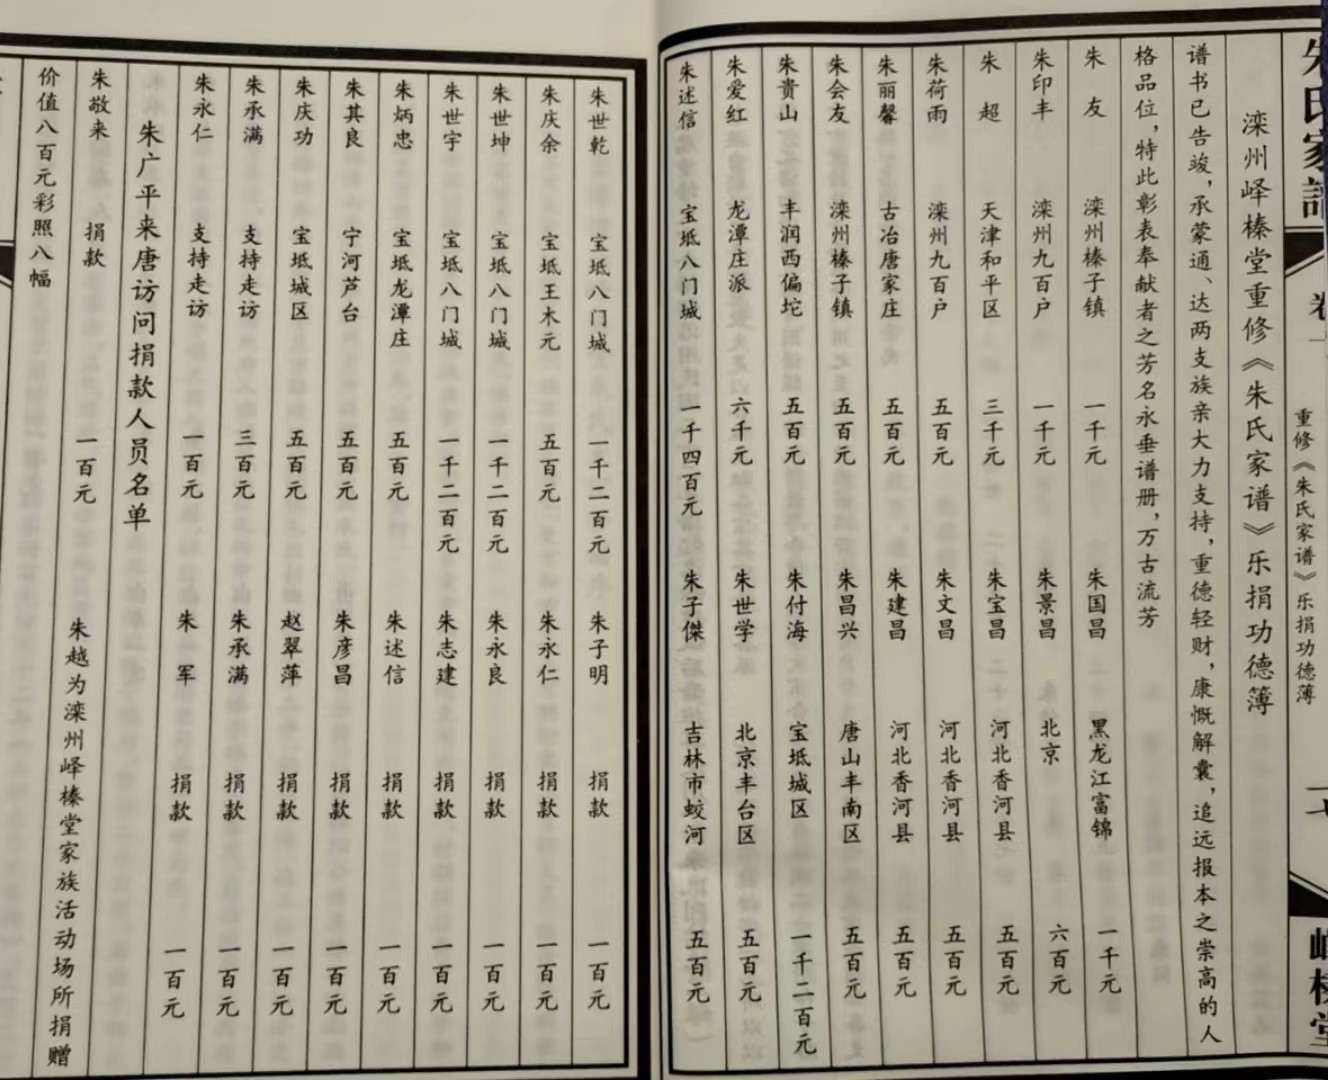 重修《朱氏家谱》乐捐功德薄
滦州峄榛堂重修《朱氏家谱》乐捐功德簿
谱书已告竣，承蒙通、达两支族亲大力支持，重德轻财，康慨解囊，追远报本之崇高的人
格品位，特此彰表奉献者之芳名永垂谱册，万古流芳
朱 友 滦州榛子镇 一千元 朱国昌 黑龙江富锦 一千元
朱印丰 滦州九百户 一千元 朱景昌 北京 六百元
朱 超 天津和平区 三千元 朱宝昌 河北香河县 五百元
朱荷雨 滦州九百户 五百元 朱文昌 河北香河县 五百元
朱丽馨 古冶唐家庄 五百元 朱建昌 河北香河县 五百元
朱会友 滦州榛子镇 五百元 朱昌兴 唐山丰南区 五百元
朱贵山 丰润西偏坨 五百元 朱付海 宝坻城区 一千二百元
朱爱红 龙潭庄派 六千元 朱世学 北京丰台区 五百元
朱述信 宝坻八门城 一千四百元 朱子傑 吉林市蛟河 五百元
朱世乾 宝坻八门城 一千二百元 朱子明 捐款 一百元
朱庆余 宝坻王木元 五百元 朱永仁 捐款 一百元
朱世坤 宝坻八门城 一千二百元 朱永良 捐款 一百元
朱世宇 宝坻八门城 一千二百元 朱志建 捐款 一百元
朱炳忠 宝坻龙潭庄 五百元 朱述信 捐款 一百元
朱其良 宁河芦台 五百元 朱彦昌 捐款 一百元
朱庆功 宝坻城区 五百元 赵翠萍 捐款 一百元
朱承满 支持走访 三百元 朱承满 捐款 一百元
朱永仁 支持走访 一百元 朱 军 捐款 一百元
朱广平来唐访问捐款人员名单
朱敬来 捐款 一百元 朱越为滦州峄榛堂家族活动场所捐赠
价值八百元彩照八幅